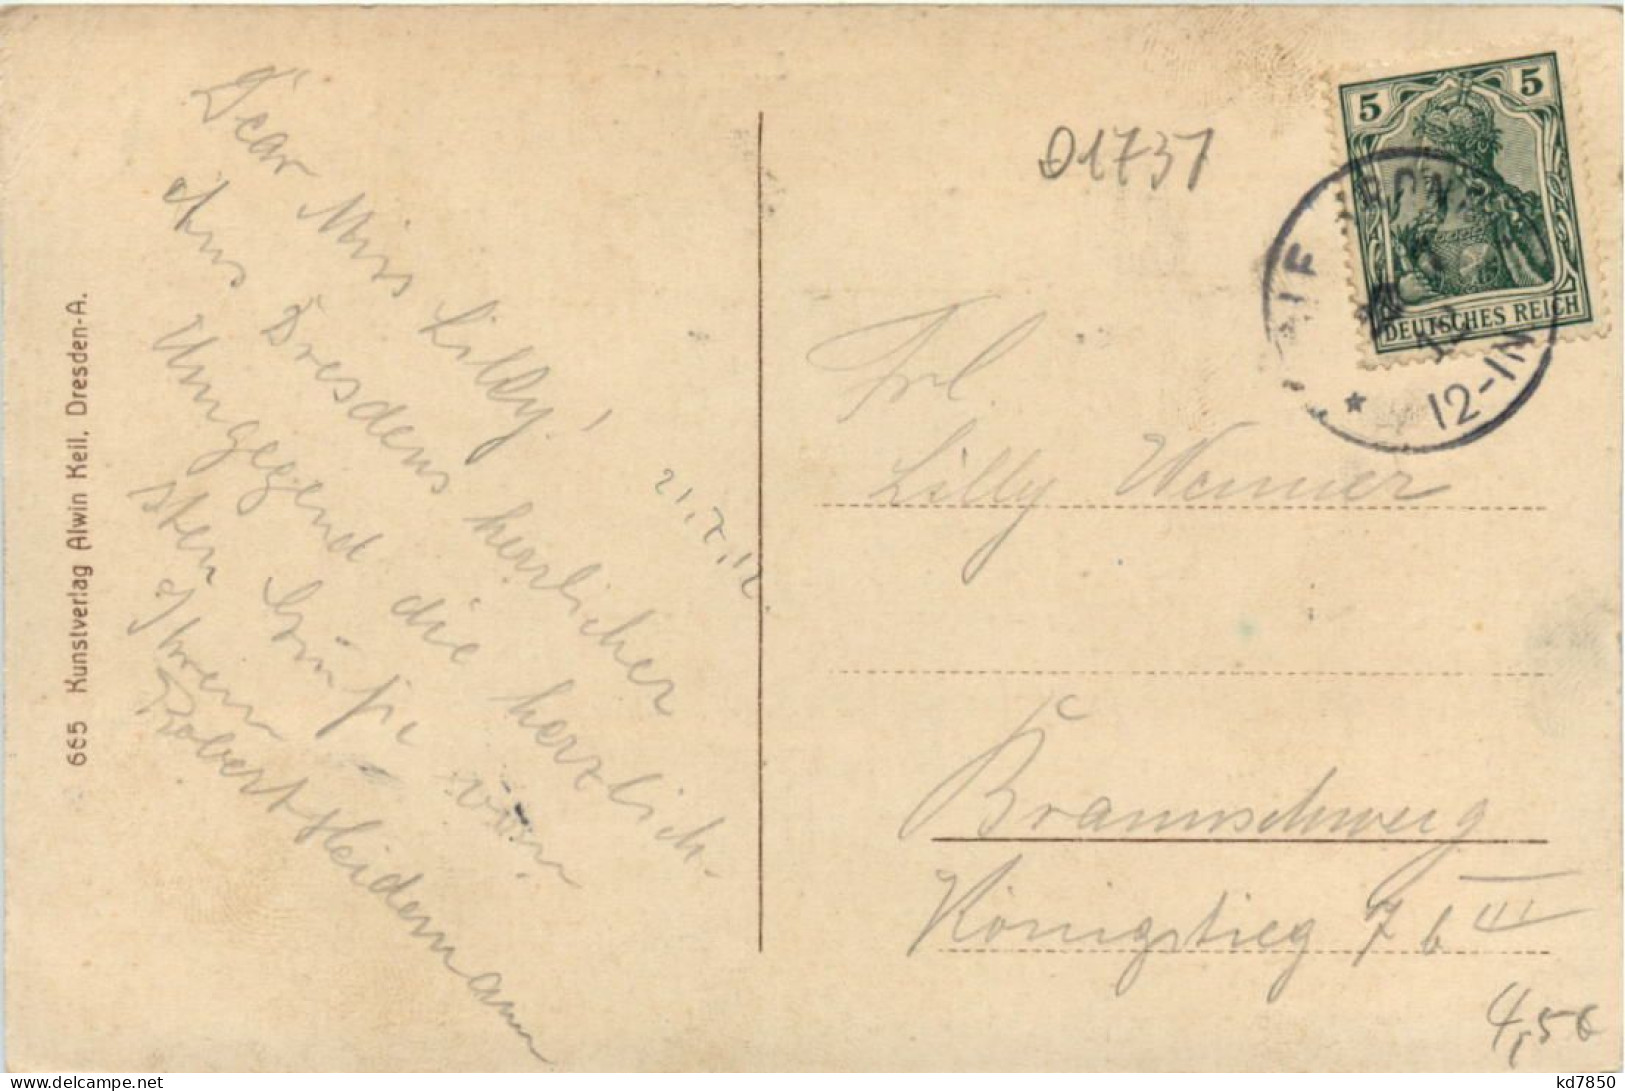 Dear Miss Lilly!
Aus Dresdens herrlicher
Umgegend die herzlich-
sten Grüße von
Ihrem
Robert Heidemann
21.7.12.
665 Kunstverlag Alwin Keil, Dresden-A.
01737
5 5
DEUTSCHES REICH
12-1N
Frl.
Lilly Werner
Braunschweig
Königstieg 7 b III
4,5€
kd7850